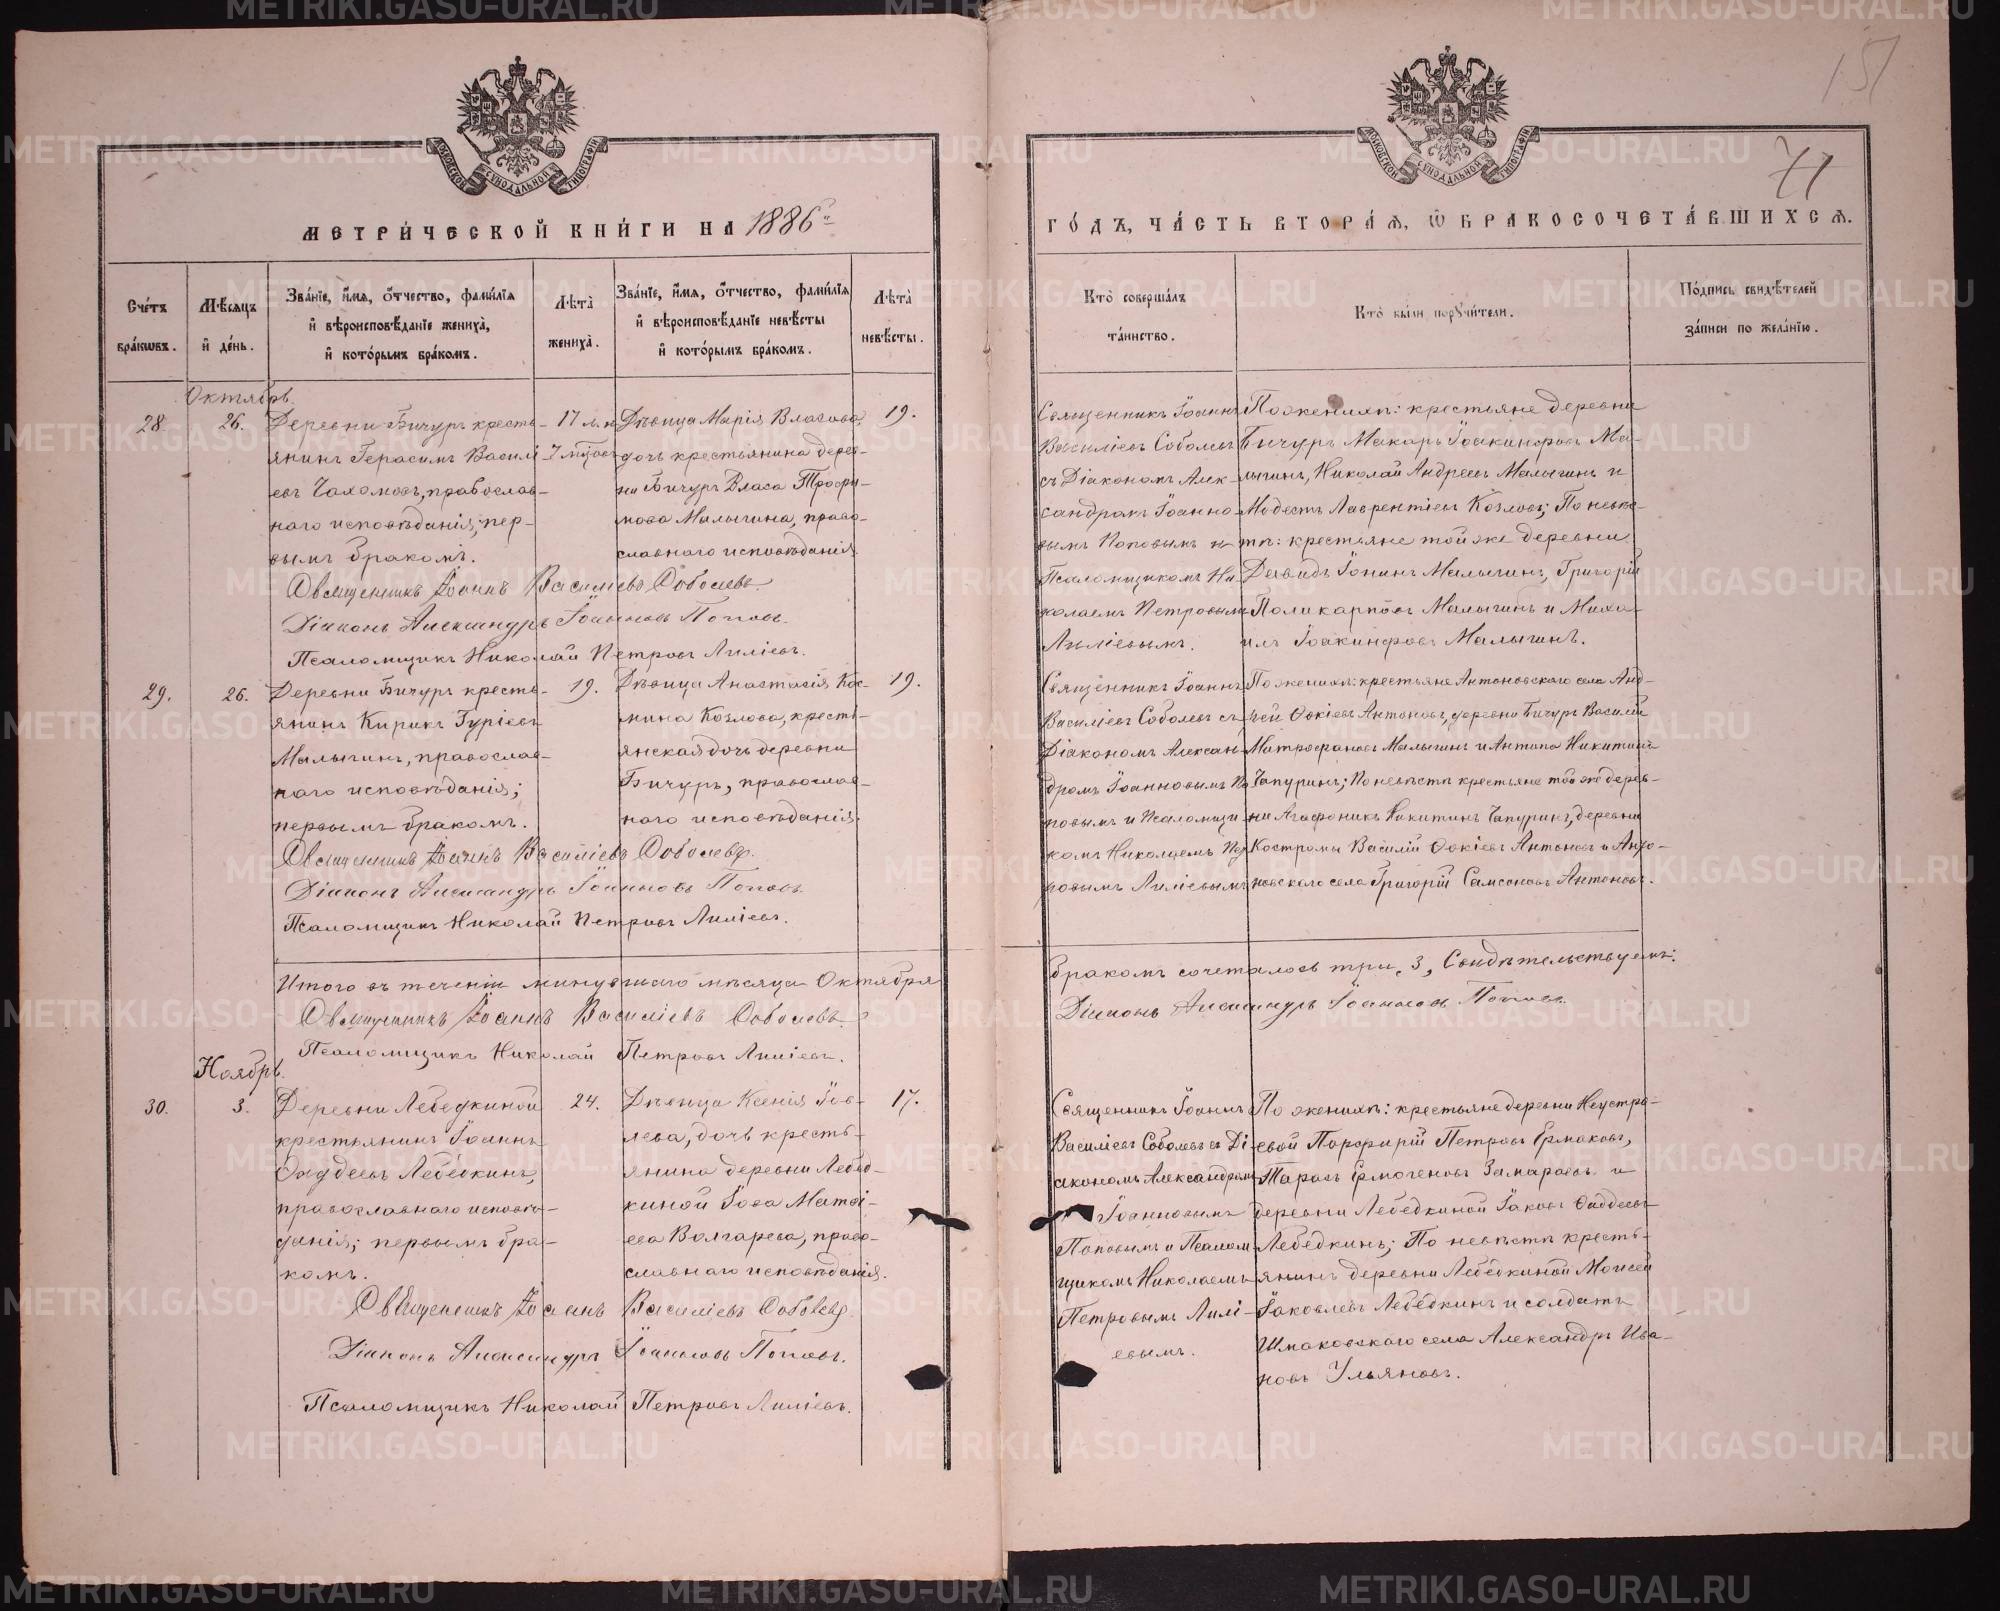 151
71
МОСКОВСКОЙ СѴНОДАЛЬНОЙ ТИПОГРАФІИ
МОСКОВСКОЙ СѴНОДАЛЬНОЙ ТИПОГРАФІИ
МЕТРИЧЕСКОЙ КНИГИ НА 1886й
ГОДЪ, ЧАСТЬ ВТОРАЯ, Ѡ БРАКОСОЧЕТАВШИХСЯ.
Счетъ браковъ.
Мѣсяцъ и день.
Званіе, имя, отчество, фамилія и вѣроисповѣданіе жениха, и которымъ бракомъ.
Лѣта жениха.
Званіе, имя, отчество, фамилія и вѣроисповѣданіе невѣсты и которымъ бракомъ.
Лѣта невѣсты.
Кто совершалъ таинство.
Кто были поручители.
Подпись свидѣтелей записи по желанію.
Октябрь.
28.
26.
Деревни Бичуръ кресть-
янинъ Герасимъ Василі
евъ Пахомовъ, православ-
наго исповѣданія; пер-
вымъ бракомъ.
17 л. и
7 мѣсяц.
Дѣвица Марія Власова,
дочь крестьянина дерев-
ни Бичуръ Власа Трофи-
мова Малыгина, право-
славнаго исповѣданія
19.
Священникъ Іоаннъ
Василіевъ Соболевъ
съ Діакономъ Алек-
сандромъ Іоанно-
вымъ Поповымъ и
Псаломщикомъ Ни-
колаемъ Петровымъ
Лиліевымъ.
По женихѣ: крестьяне деревни
Бичуръ Макаръ Іоакинфовъ Ма-
лыгинъ, Николай Андреевъ Малыгинъ и
Модестъ Лаврентіевъ Козловъ; По невѣс-
тѣ: крестьяне той же деревни
Давидъ Іонинъ Малыгинъ, Григорій
Поликарповъ Малыгинъ и Миха-
илъ Іоакинфовъ Малыгинъ.
Священникъ Іоаннъ Василіевъ Соболевъ.
Діаконъ Александръ Іоанновъ Поповъ.
Псаломщикъ Николай Петровъ Лиліевъ.
29.
26.
Деревни Бичуръ кресть-
янинъ Кирикъ Гуріевъ
Малыгинъ, православ-
наго исповѣданія;
первымъ бракомъ.
19.
Дѣвица Анастасія Кос-
мина Козлова, кресть-
янская дочь деревни
Бичуръ, православ-
наго исповѣданія.
19.
Священникъ Іоаннъ
Василіевъ Соболевъ съ
Діакономъ Алексан-
дромъ Іоанновымъ По
повымъ и Псаломщи-
комъ Николаемъ Пет
ровымъ Лиліевымъ
По женихѣ: крестьяне Антоновскаго села Анд-
рей Фокіевъ Антоновъ, деревни Бичуръ Василій
Митрофановъ Малыгинъ и Антипа Никитинъ
Чапуринъ; По невѣстѣ крестьяне той же дерев-
ни Агафоникъ Никитинъ Чапуринъ, деревни
Костромы Василій Фокіевъ Антоновъ и Анто-
новскаго села Григорій Самсоновъ Антоновъ.
Священникъ Іоаннъ Василіевъ Соболевъ.
Діаконъ Александръ Іоанновъ Поповъ.
Псаломщикъ Николай Петровъ Лиліевъ.
Итого въ теченіи минувшаго мѣсяца Октября
бракомъ сочеталось три, 3, Свидѣтельствуемъ:
Священникъ Іоаннъ Василіевъ Соболевъ.
Діаконъ Александръ Іоанновъ Поповъ.
Псаломщикъ Николай Петровъ Лиліевъ.
Ноябрь.
30.
3.
Деревни Лебедкиной
крестьянинъ Іоаннъ
Фаддеевъ Лебедкинъ,
православнаго исповѣ-
данія; первымъ бра-
комъ.
24.
Дѣвица Ксенія Іов-
лева, дочь кресть-
янина деревни Лебед-
киной Іова Матѳі-
ева Волгарева, право-
славнаго исповѣданія.
17.
Священникъ Іоаннъ
Василіевъ Соболевъ съ Ді-
акономъ Александромъ
Іоанновымъ
Поповымъ и Псалом
щикомъ Николаемъ
Петровымъ Лилі-
евымъ.
По женихѣ: крестьяне деревни Неустро-
евой Порфирій Петровъ Ермаковъ,
Тарасъ Ермогеновъ Замараевъ и
деревни Лебедкиной Іаковъ Фаддеевъ
Лебедкинъ; По невѣстѣ кресть-
янинъ деревни Лебедкиной Моисей
Іаковлевъ Лебедкинъ и солдатъ
Шмаковскаго села Александръ Ива-
новъ Ульяновъ.
Священникъ Іоаннъ Василіевъ Соболевъ.
Діаконъ Александръ Іоанновъ Поповъ.
Псаломщикъ Николай Петровъ Лиліевъ.
METRIKI.GASO-URAL.RU